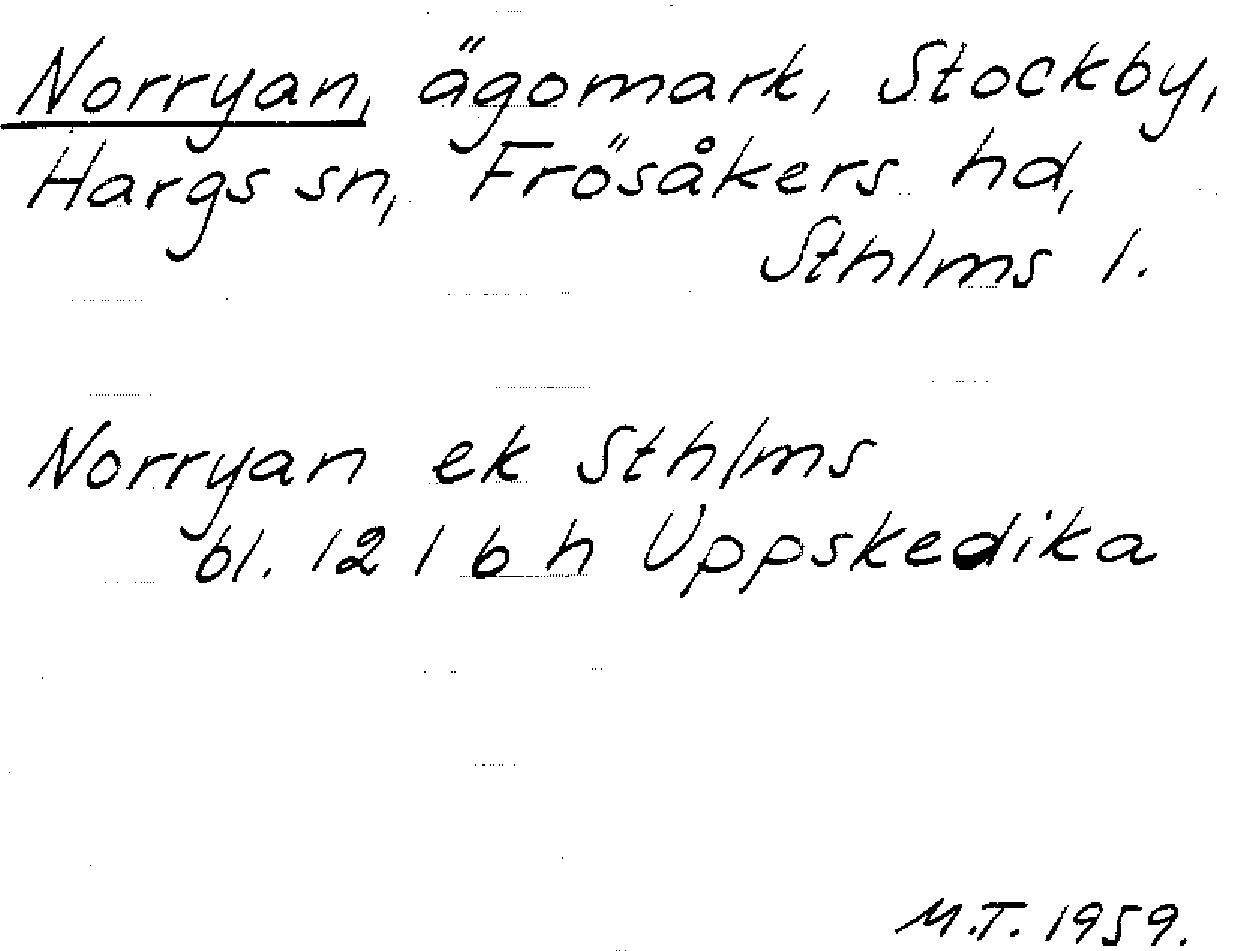 Norryan, ägomark, Stockby,
Hargs sn, Frösåkers hd,
Sthlms l.
Norryan ek Sthlms
bl. 12 l b h Uppskedika
M.T. 1959.